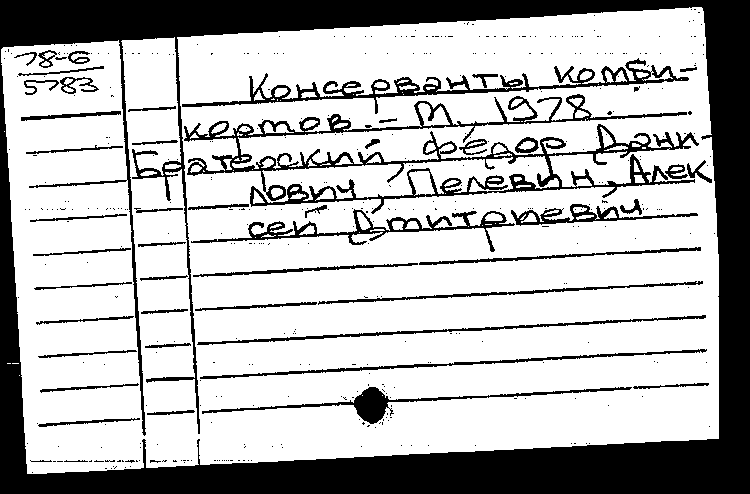 78-6
5783
Консерванты комби-
кормов. - М., 1978.
Братерский, Фёдор Дани-
лович, Пелевин, Алек
сей Дмитриевич